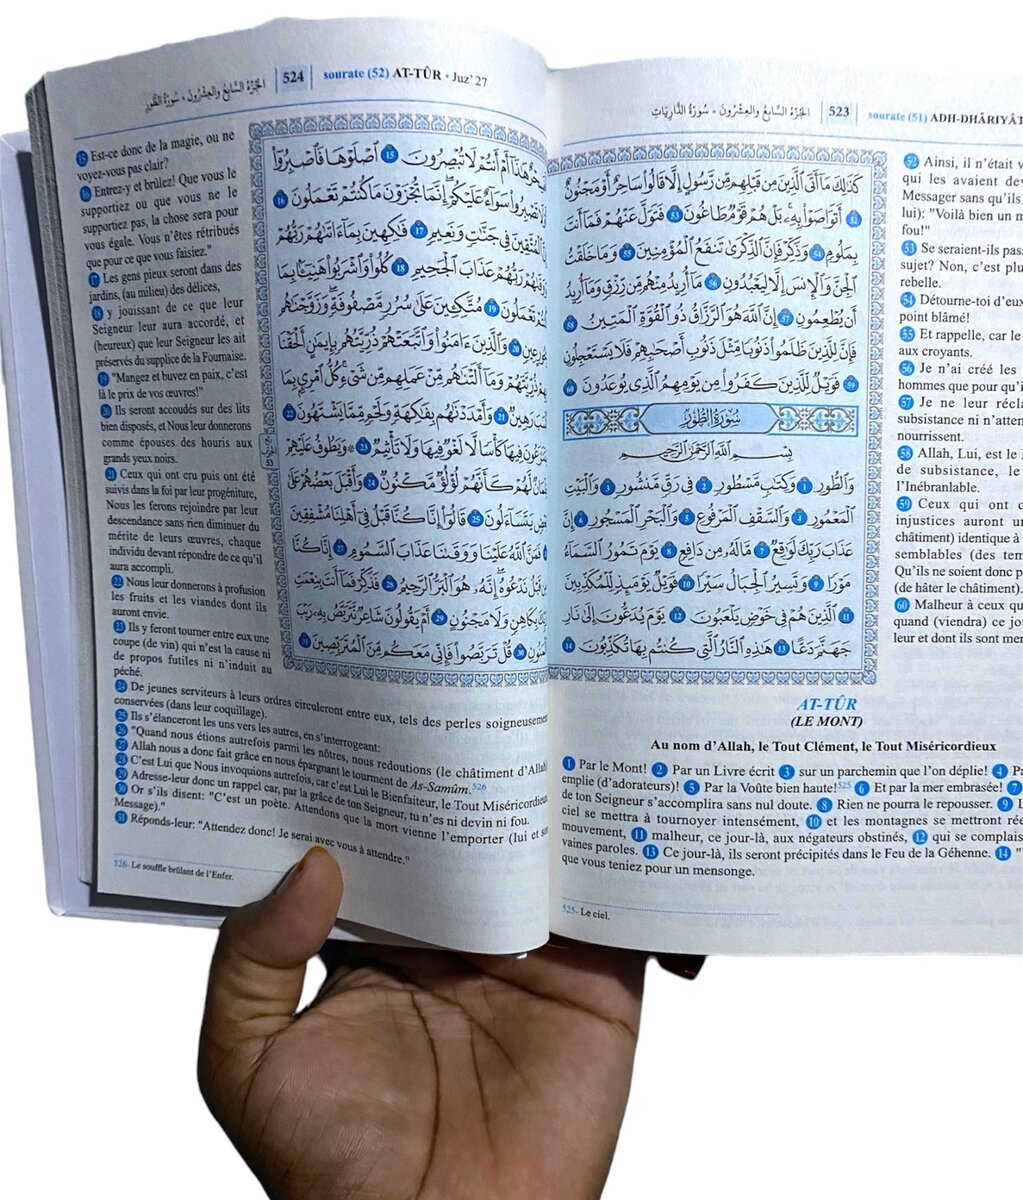 الجزء السابع والعشرون • سورة الذاريات 523 sourate (51) ADH-DHÂRIYÂT
كَذَٰلِكَ مَا أَتَى الَّذِينَ مِن قَبْلِهِم مِّن رَّسُولٍ إِلَّا قَالُوا سَاحِرٌ أَوْ مَجْنُونٌ
52 أَتَوَاصَوْا بِهِ ۚ بَلْ هُمْ قَوْمٌ طَاغُونَ 53 فَتَوَلَّ عَنْهُمْ فَمَا أَنتَ
بِمَلُومٍ 54 وَذَكِّرْ فَإِنَّ الذِّكْرَىٰ تَنفَعُ الْمُؤْمِنِينَ 55 وَمَا خَلَقْتُ
الْجِنَّ وَالْإِنسَ إِلَّا لِيَعْبُدُونِ 56 مَا أُرِيدُ مِنْهُم مِّن رِّزْقٍ وَمَا أُرِيدُ
أَن يُطْعِمُونِ 57 إِنَّ اللَّهَ هُوَ الرَّزَّاقُ ذُو الْقُوَّةِ الْمَتِينُ 58
فَإِنَّ لِلَّذِينَ ظَلَمُوا ذَنُوبًا مِّثْلَ ذَنُوبِ أَصْحَابِهِمْ فَلَا يَسْتَعْجِلُونِ
59 فَوَيْلٌ لِّلَّذِينَ كَفَرُوا مِن يَوْمِهِمُ الَّذِي يُوعَدُونَ 60
سُورَةُ الطُّورِ
بِسْمِ اللَّهِ الرَّحْمَٰنِ الرَّحِيمِ
وَالطُّورِ 1 وَكِتَابٍ مَّسْطُورٍ 2 فِي رَقٍّ مَّنشُورٍ 3 وَالْبَيْتِ
الْمَعْمُورِ 4 وَالسَّقْفِ الْمَرْفُوعِ 5 وَالْبَحْرِ الْمَسْجُورِ 6 إِنَّ
عَذَابَ رَبِّكَ لَوَاقِعٌ 7 مَّا لَهُ مِن دَافِعٍ 8 يَوْمَ تَمُورُ السَّمَاءُ
مَوْرًا 9 وَتَسِيرُ الْجِبَالُ سَيْرًا 10 فَوَيْلٌ يَوْمَئِذٍ لِّلْمُكَذِّبِينَ
11 الَّذِينَ هُمْ فِي خَوْضٍ يَلْعَبُونَ 12 يَوْمَ يُدَعُّونَ إِلَىٰ نَارِ
جَهَنَّمَ دَعًّا 13 هَٰذِهِ النَّارُ الَّتِي كُنتُم بِهَا تُكَذِّبُونَ 14
52 Ainsi, il n'était
qui les avaient
Messager sans qu'ils
lui): "Voilà bien un
fou!"
53 Se seraient-ils
sujet? Non, c'est
rebelle.
54 Détourne-toi d'eux
point blâmé!
55 Et rappelle, car le
aux croyants.
56 Je n'ai créé les
hommes que pour
57 Je ne leur
subsistance ni
nourrissent.
58 Allah, Lui, est le
de subsistance, le
l'Inébranlable.
59 Ceux qui ont
injustices auront
châtiment) identique à
semblables (des
Qu'ils ne soient donc
(de hâter le châtiment).
60 Malheur à ceux
quand (viendra) ce
leur et dont ils sont
AT-TÛR
(LE MONT)
Au nom d'Allah, le Tout Clément, le Tout Miséricordieux
1 Par le Mont! 2 Par un Livre écrit 3 sur un parchemin que l'on déplie! 4
emplie (d'adorateurs)! 5 Par la Voûte bien haute!525 6 Et par la mer embrasée! 7
de ton Seigneur s'accomplira sans nul doute. 8 Rien ne pourra le repousser. 9
ciel se mettra à tournoyer intensément, 10 et les montagnes se mettront
mouvement, 11 malheur, ce jour-là, aux négateurs obstinés, 12 qui se
vaines paroles. 13 Ce jour-là, ils seront précipités dans le Feu de la Géhenne. 14
que vous teniez pour un mensonge.
525- Le ciel.
الجزء السابع والعشرون • سورة الطور 524 sourate (52) AT-TÛR • Juz' 27
هَٰذَا أَمْ أَنتُمْ لَا تُبْصِرُونَ 15 اصْلَوْهَا فَاصْبِرُوا
تَصْبِرُوا سَوَاءٌ عَلَيْكُمْ ۖ إِنَّمَا تُجْزَوْنَ مَا كُنتُمْ تَعْمَلُونَ 16
الْمُتَّقِينَ فِي جَنَّاتٍ وَنَعِيمٍ 17 فَاكِهِينَ بِمَا آتَاهُمْ رَبُّهُمْ
رَبُّهُمْ عَذَابَ الْجَحِيمِ 18 كُلُوا وَاشْرَبُوا هَنِيئًا بِمَا
تَعْمَلُونَ 19 مُتَّكِئِينَ عَلَىٰ سُرُرٍ مَّصْفُوفَةٍ ۖ وَزَوَّجْنَاهُم
عِينٍ 20 وَالَّذِينَ آمَنُوا وَاتَّبَعَتْهُمْ ذُرِّيَّتُهُم بِإِيمَانٍ أَلْحَقْنَا
ذُرِّيَّتَهُمْ وَمَا أَلَتْنَاهُم مِّنْ عَمَلِهِم مِّن شَيْءٍ ۚ كُلُّ امْرِئٍ بِمَا
21 وَأَمْدَدْنَاهُم بِفَاكِهَةٍ وَلَحْمٍ مِّمَّا يَشْتَهُونَ 22
فِيهَا كَأْسًا لَّا لَغْوٌ فِيهَا وَلَا تَأْثِيمٌ 23 ۞ وَيَطُوفُ عَلَيْهِمْ
لَّهُمْ كَأَنَّهُمْ لُؤْلُؤٌ مَّكْنُونٌ 24 وَأَقْبَلَ بَعْضُهُمْ عَلَىٰ
يَتَسَاءَلُونَ 25 قَالُوا إِنَّا كُنَّا قَبْلُ فِي أَهْلِنَا مُشْفِقِينَ
26 فَمَنَّ اللَّهُ عَلَيْنَا وَوَقَانَا عَذَابَ السَّمُومِ 27 إِنَّا كُنَّا
قَبْلُ نَدْعُوهُ ۖ إِنَّهُ هُوَ الْبَرُّ الرَّحِيمُ 28 فَذَكِّرْ فَمَا أَنتَ بِنِعْمَتِ
بِكَاهِنٍ وَلَا مَجْنُونٍ 29 أَمْ يَقُولُونَ شَاعِرٌ نَّتَرَبَّصُ بِهِ رَيْبَ
30 قُلْ تَرَبَّصُوا فَإِنِّي مَعَكُم مِّنَ الْمُتَرَبِّصِينَ 31
15 Est-ce donc de la magie, ou ne
voyez-vous pas clair?
16 Entrez-y et brûlez! Que vous le
supportiez ou que vous ne le
supportiez pas, la chose sera pour
vous égale. Vous n'êtes rétribués
que pour ce que vous faisiez."
17 Les gens pieux seront dans des
jardins, (au milieu) des délices,
18 y jouissant de ce que leur
Seigneur leur aura accordé, et
(heureux) que leur Seigneur les ait
préservés du supplice de la Fournaise.
19 "Mangez et buvez en paix, c'est
là le prix de vos œuvres!"
20 Ils seront accoudés sur des lits
bien disposés, et Nous leur donnerons
comme épouses des houris aux
grands yeux noirs.
21 Ceux qui ont cru puis ont été
suivis dans la foi par leur progéniture,
Nous les ferons rejoindre par leur
descendance sans rien diminuer du
mérite de leurs œuvres, chaque
individu devant répondre de ce qu'il
aura accompli.
22 Nous leur donnerons à profusion
les fruits et les viandes dont ils
auront envie.
23 Ils y feront tourner entre eux une
coupe (de vin) qui n'est la cause ni
de propos futiles ni n'induit au
péché.
24 De jeunes serviteurs à leurs ordres circuleront entre eux, tels des perles soigneusement
conservées (dans leur coquillage).
25 Ils s'élanceront les uns vers les autres, en s'interrogeant;
26 "Quand nous étions autrefois parmi les nôtres, nous redoutions (le châtiment d'Allah)
27 Allah nous a donc fait grâce en nous épargnant le tourment de As-Samûm.526
28 C'est Lui que Nous invoquions autrefois, car c'est Lui le Bienfaiteur, le Tout Miséricordieux
29 Adresse-leur donc un rappel car, par la grâce de ton Seigneur, tu n'es ni devin ni fou.
30 Or s'ils disent: "C'est un poète. Attendons que la mort vienne l'emporter (lui et son
Message)."
31 Réponds-leur: "Attendez donc! Je serai avec vous à attendre."
526- Le souffle brûlant de l'Enfer.